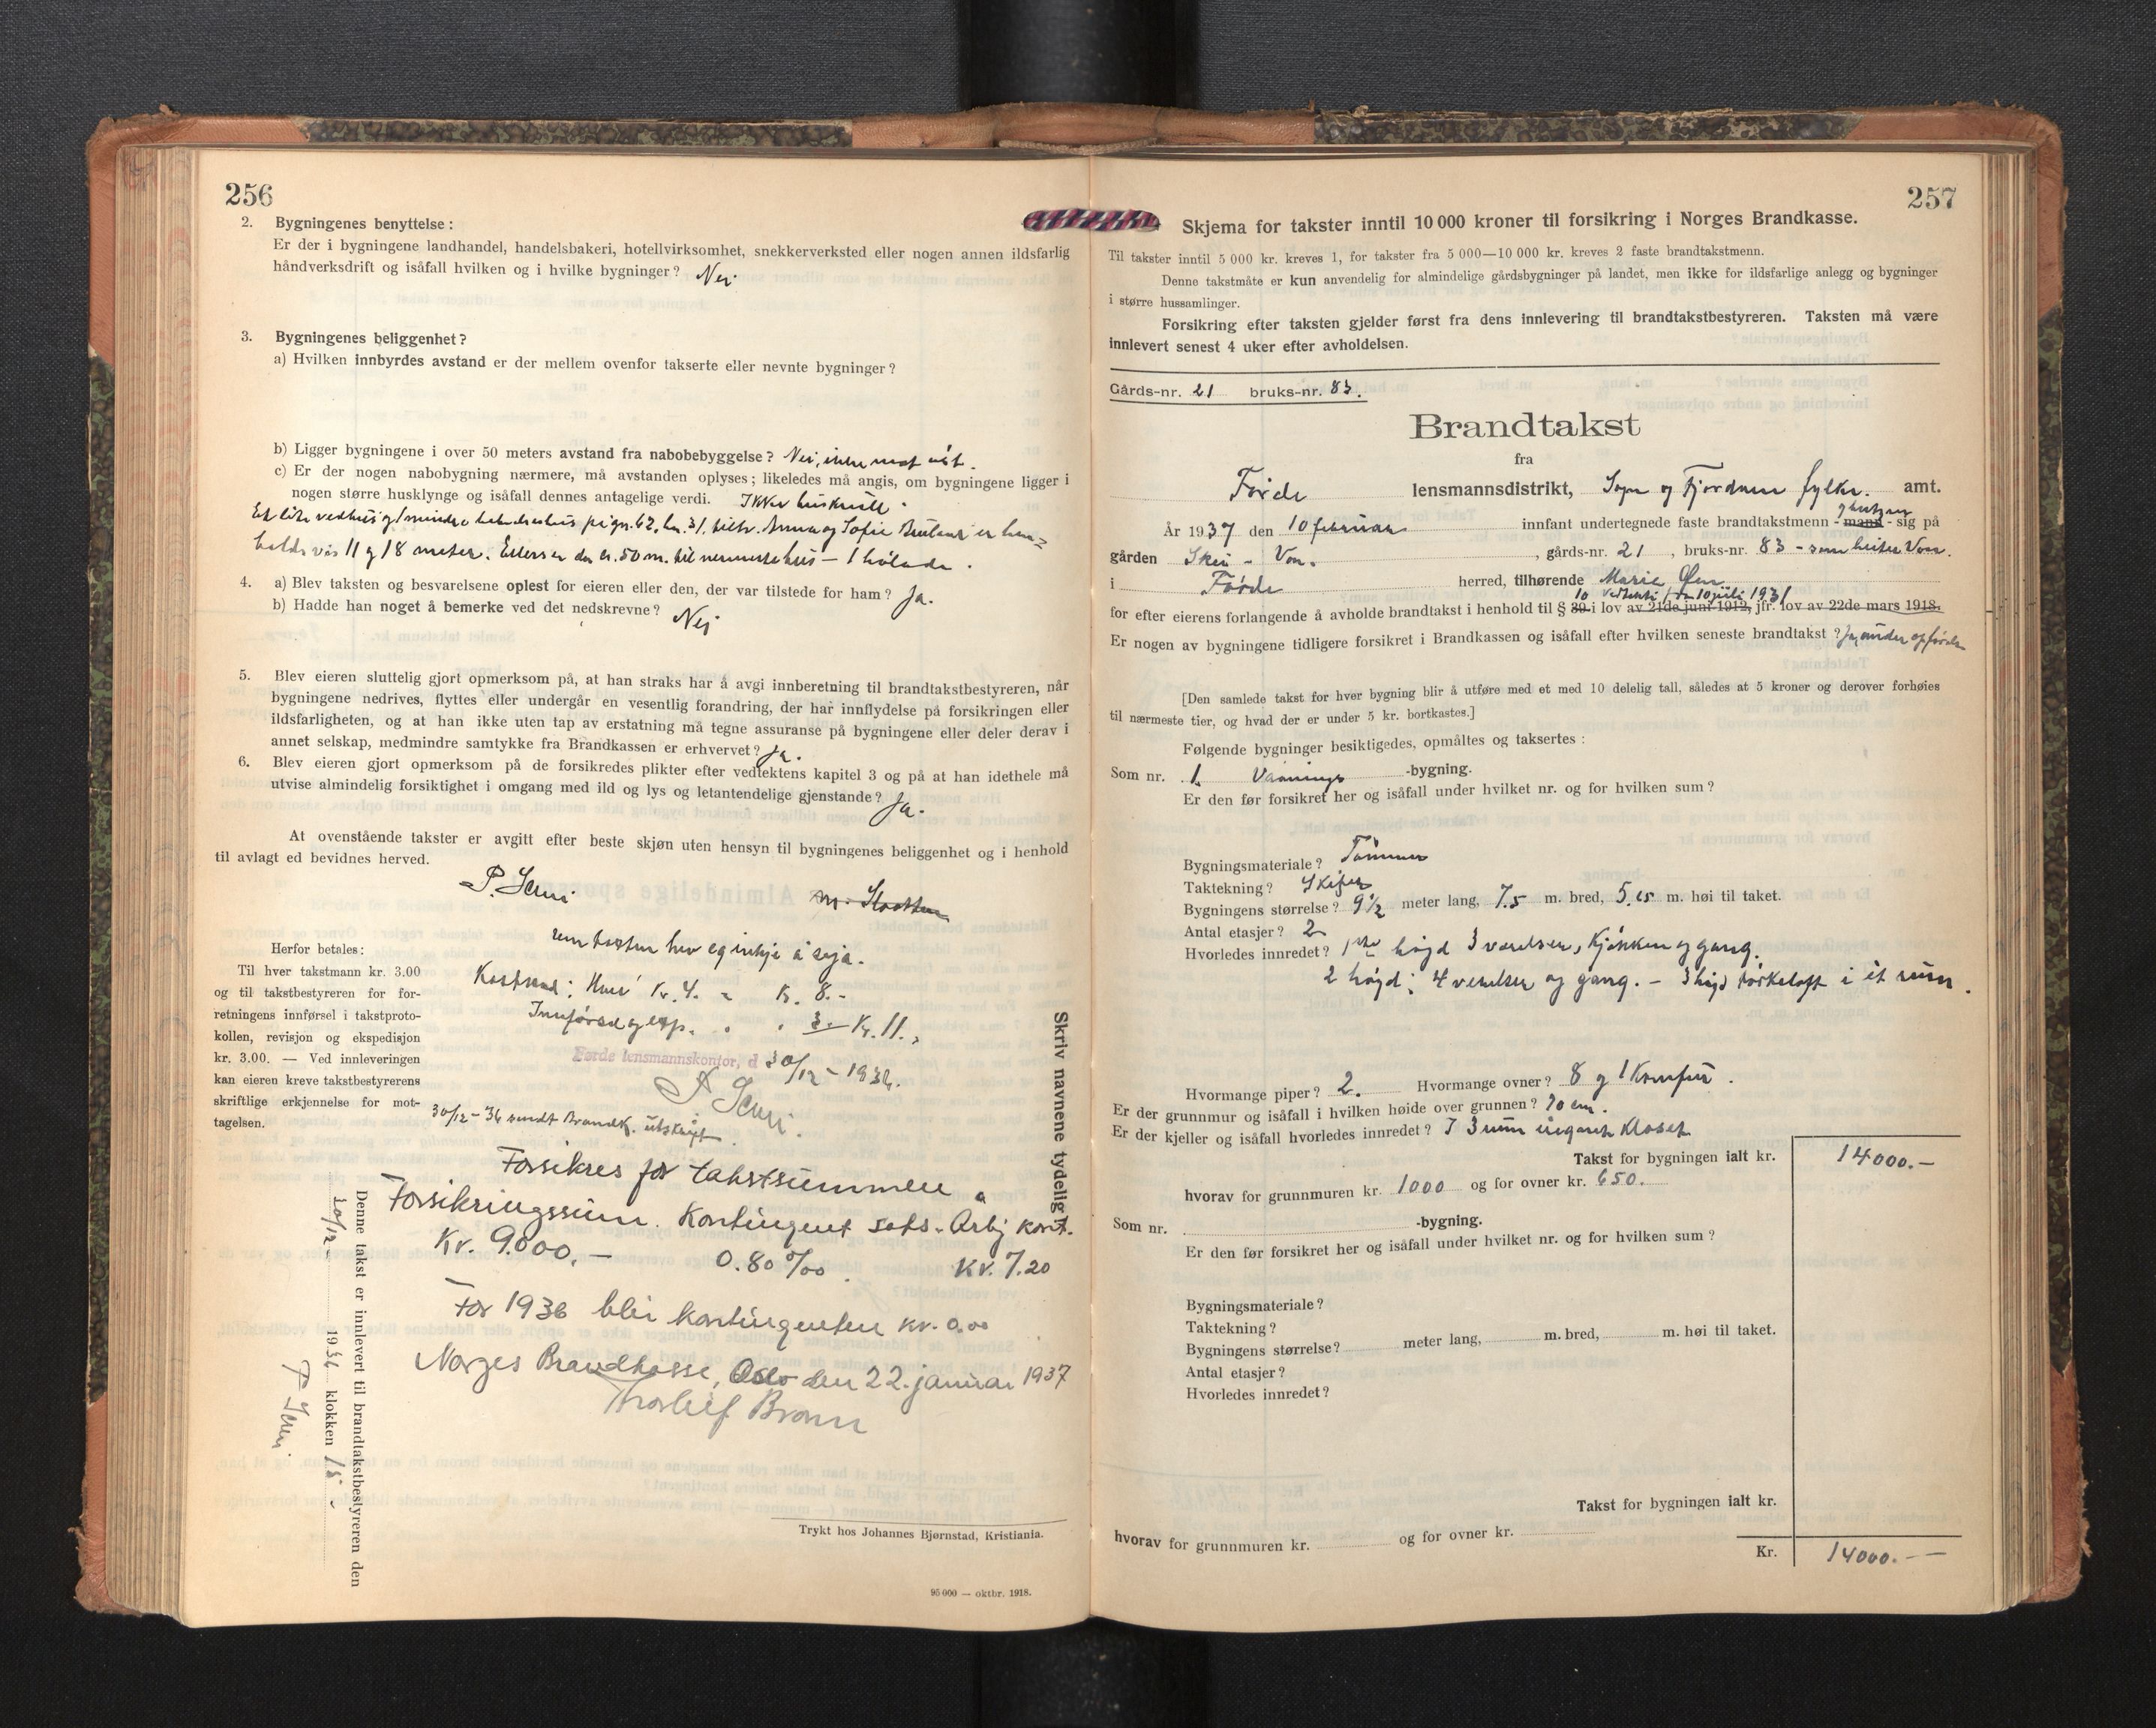 256
2. Bygningenes benyttelse :
Er der i bygningene landhandel, handelsbakeri, hotellvirksomhet, snekkerverksted eller nogen annen ildsfarlig
håndverksdrift og isåfall hvilken og i hvilke bygninger? Nei
3. Bygningenes beliggenhet?
a) Hvilken innbyrdes avstand er der mellem ovenfor takserte eller nevnte bygninger?
b) Ligger bygningene i over 50 meters avstand fra nabobebyggelse? Nei, ikke mot
c) Er der nogen nabobygning nærmere, må avstanden oplyses; likeledes må angis, om bygningene ligger i
nogen større husklynge og isåfall dennes antagelige verdi. Ikke
Eit lite vedhus og 1 mindre på gn. 62, bn. 31, tilh. Anna og Sofie er hen-
holdsvis 11 og 18 meter. Ellers er der ca. 50 m. til nermeste hus — 1
4. a) Blev taksten og besvarelsene oplest for eieren eller den, der var tilstede for ham? Ja.
b) Hadde han noget å bemerke ved det nedskrevne? Nei
5. Blev eieren sluttelig gjort opmerksom på, at han straks har å avgi innberetning til brandtakstbestyreren, når
bygningene nedrives, flyttes eller undergår en vesentlig forandring, der har innflydelse på forsikringen eller
ildsfarligheten, og at han ikke uten tap av erstatning må tegne assuranse på bygningene eller deler derav i
annet selskap, medmindre samtykke fra Brandkassen er erhvervet? Ja.
6. Blev eieren gjort opmerksom på de forsikredes plikter efter vedtektens kapitel 3 og på at han idethele må
utvise almindelig forsiktighet i omgang med ild og lys og letantendelige gjenstande? Ja.
At ovenstående takster er avgitt efter beste skjøn uten hensyn til bygningenes beliggenhet og i henhold
til avlagt ed bevidnes herved.
P.
M.
Herfor betales:
Til hver takstmann kr. 3.00
og til takstbestyreren for for-
retningens innførsel i takstproto-
kollen, revisjon og ekspedisjon
kr. 3.00. — Ved innleveringen
kan eieren kreve takstbestyrerens
skriftlige erkjennelse for mot-
tagelsen.
hev eg inkje å seja.
Kostnad: Kr. 4. = Kr. 8.-
3.- Kr. 11.,
Førde lensmannskontor, d 30/12 - 1936.
30/12 - 36 sendt Brandk. utskrift.
Forsikres for takstsummen.
Forsikringssum. Kontingent sats. Årlig kont.
Kr. 9.000.- 0.80 ‰ Kr. 7.20
For 1936 blir kontingenten kr. 0.00
Norges Brandkasse, Oslo den 22. januar 1937
Skriv navnene tydelig!
Denne takst er innlevert til brandtakstbestyreren den
30/12 - 1936 klokken 15 -
Trykt hos Johannes Bjørnstad, Kristiania.
95 000 — oktbr. 1918.
257
Skjema for takster inntil 10 000 kroner til forsikring i Norges Brandkasse.
Til takster inntil 5 000 kr. kreves 1, for takster fra 5 000—10 000 kr. kreves 2 faste brandtakstmenn.
Denne takstmåte er kun anvendelig for almindelige gårdsbygninger på landet, men ikke for ildsfarlige anlegg og bygninger
i større hussamlinger.
Forsikring efter taksten gjelder først fra dens innlevering til brandtakstbestyreren. Taksten må være
innlevert senest 4 uker efter avholdelsen.
Gårds-nr. 21 bruks-nr. 83.
Brandtakst
fra
Førde lensmannsdistrikt, Sogn og Fjordane fylke. amt.
År 1937 den 10 februar innfant undertegnede faste brandtakstmenn - mann - sig på
gården Skei - Von. , gårds-nr. 21 , bruks-nr. 83 - som heiter Von.
i Førde herred, tilhørende Marie Øen
10 vedtekti den 10 juli 1931
for efter eierens forlangende å avholde brandtakst i henhold til § 39 i lov av 21de juni 1912, jfr. lov av 22de mars 1918.
Er nogen av bygningene tidligere forsikret i Brandkassen og isåfall efter hvilken seneste brandtakst? Ja, under
[Den samlede takst for hver bygning blir å utføre med et med 10 delelig tall, således at 5 kroner og derover forhøies
til nærmeste tier, og hvad der er under 5 kr. bortkastes.]
Følgende bygninger besiktigedes, opmåltes og taksertes :
Som nr. 1. Vånings -bygning.
Er den før forsikret her og isåfall under hvilket nr. og for hvilken sum?
Bygningsmateriale? Tømmer
Taktekning? Skifer
Bygningens størrelse? 9 1/2 meter lang, 7.5 m. bred, 5.65 m. høi til taket.
Antal etasjer? 2
Hvorledes innredet? 1ste høgd 3 værelser, kjøkken og gang.
2 høgd: 4 verelser og gang. - 3 høgd tørkeloft i eit rum.
Hvormange piper? 2. Hvormange ovner? 8 og 1 komfur.
Er der grunnmur og isåfall i hvilken høide over grunnen? 70 cm.
Er der kjeller og isåfall hvorledes innredet? I 3 rum
Takst for bygningen ialt kr. 14000.-
hvorav for grunnmuren kr. 1000 og for ovner kr. 650.
Som nr. -bygning.
Er den før forsikret her og isåfall under hvilket nr. og for hvilken sum?
Bygningsmateriale?
Taktekning?
Bygningens størrelse? meter lang, m. bred, m. høi til taket.
Antal etasjer?
Hvorledes innredet?
Takst for bygningen ialt kr.
hvorav for grunnmuren kr. og for ovner kr.
Kr. 14000.--